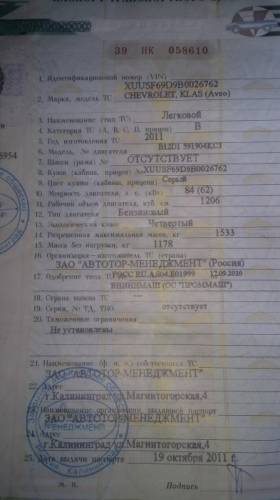 39 НК 058610
1. Идентификационный номер (VIN) XUUSF69D9B0026762
2. Марка, модель ТС CHEVROLET, KLAS (Aveo)
3. Наименование (тип ТС) Легковой
4. Категория ТС (А, В, С, D, прицеп) В
5. Год изготовления ТС 2011
6. Модель, № двигателя
7. Шасси (рама) № ОТСУТСТВУЕТ
8. Кузов (кабина, прицеп) № XUUSF69D9B0026762
9. Цвет кузова (кабины, прицепа) Серый
10. Мощность двигателя, л. с. (кВт) 84 (62)
11. Рабочий объем двигателя, куб. см 1206
12. Тип двигателя Бензиновый
13. Экологический класс Четвертый
14. Разрешенная максимальная масса, кг 1533
15. Масса без нагрузки, кг 1178
16. Организация—изготовитель ТС (страна)
ЗАО "АВТОТОР-МЕНЕДЖМЕНТ" (Россия)
17. Одобрение типа ТС №
(ОС "ПРОММАШ")
18. Страна вывоза ТС
19. Серия, № ТД, ТПО отсутствует
20. Таможенные ограничения
Не установлены
21. Наименование (ф. и. о.) собственника ТС
ЗАО "АВТОТОР-МЕНЕДЖМЕНТ"
22. Адрес
г.Калининград,ул.Магнитогорская,4
23. Наименование организации, выдавшей паспорт
ЗАО "АВТОТОР-МЕНЕДЖМЕНТ"
24. Адрес
г.Калининград,ул.Магнитогорская,4
25. Дата выдачи паспорта 19 октября 2011 г.
М. П. Подпись